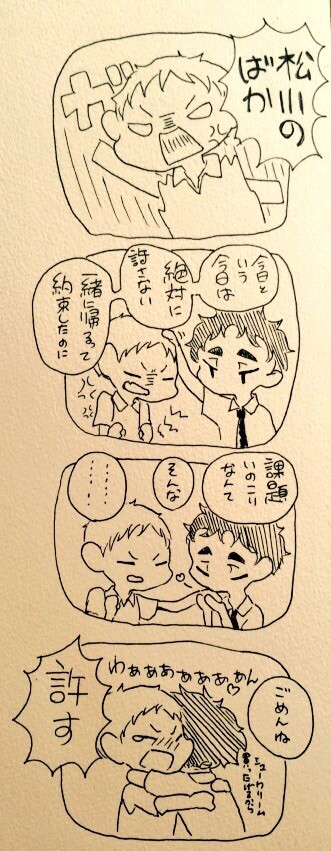 松川の
ばか
ガ
今日と
いう
今日は
絶対に
許さない
一緒に帰るって
約束したのに
課題
いのこり
なんて
そんな
………
………
ごめんね
わぁぁああぁぁぁん
シュークリーム
買ったげるから
許す